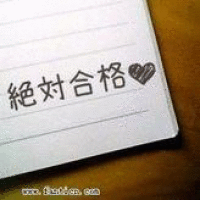 絶対合格♥
www.fantizn.com